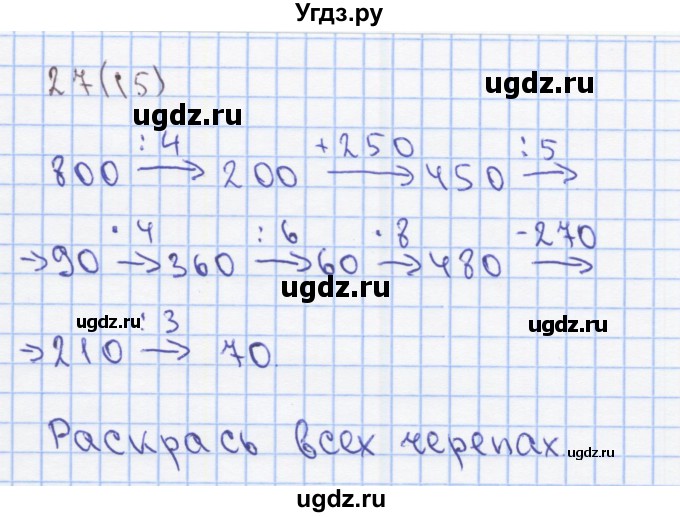 Угдз.ру
27(15)
ugdz.ru
ugdz.ru
: 4 + 250 : 5
800 → 200 → 450 →
· 4 : 6 · 8 - 270
→ 90 → 360 → 60 → 480 →
ugdz.ru
ugdz.ru : 3 ugdz.ru
→ 210 → 70
Раскрась всех черепах
ugdz.ru
ugdz.ru